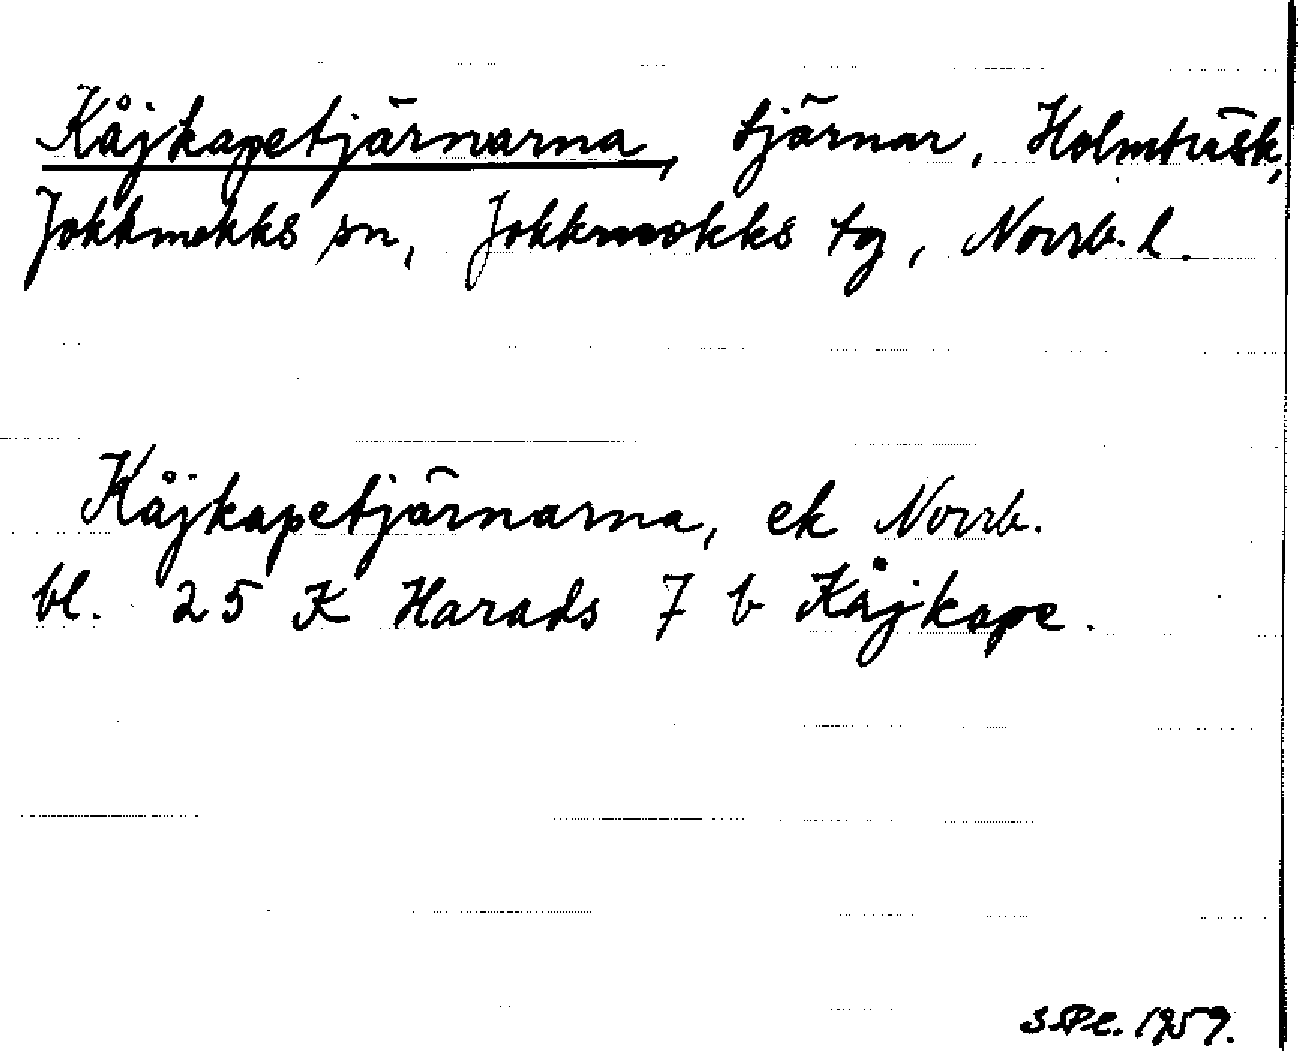 Kåjkapetjärnarna, tjärnar, Holmträsk,
Jokkmokks sn, Jokkmokks tg, Norrb. l.
Kåjkapetjärnarna, ek Norrb.
bl. 25 K Harads 7 b Kåjkape.
1959.